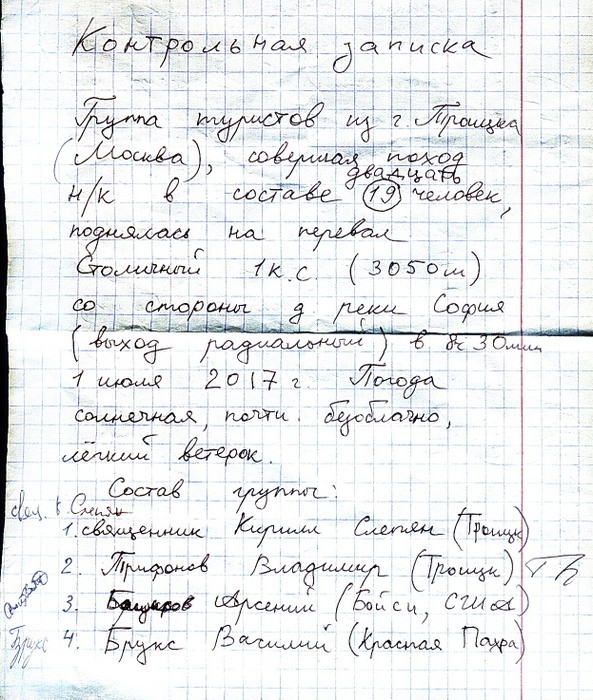 Контрольная записка
Группа туристов из г. Троицка
(Москва), совершая поход
двадцать
н/к в составе 19 человек,
поднялась на перевал
Столичный 1к.с. (3050м)
со стороны д реки София
(выход радиальный) в 8ч 30мин
1 июля 2017 г. Погода
солнечная, почти безоблачно,
лёгкий ветерок.
Состав группы:
свящ. К. Слепян
1. священник Кирилл Слепян (Троицк)
2. Трифонов Владимир (Троицк)
3. Арсений (Бойси, США)
Брукс 4. Брукс Василий (Красная Пахра)